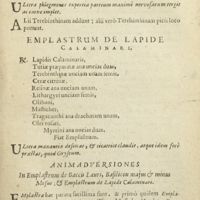 Ulcera phlegmones expertia partium maximè nervosarum terget
ac carne implet.
Alii Terebinthinam addunt; alii verò Terebinthinam pici loco
ponunt.
EMPLASTRUM DE LAPIDE
CALAMINARI,
℞. Lapidis Calaminaris,
Tutiæ præparatæ ana unciam
Terebinthinæ unciam unam
Ceræ citrinæ,
Resinæ ana uncias
Lithargyri unciam semis,
Olibani,
Mastiches,
Tragacanthi ana drachmam unam,
Olei rosati,
Myrtini ana uncias duas,
Fiat Emplastrum.
Ulcera manantia desiccat, & cicatrice claudit, atque idem ferè
præstat, quod Gryseum.
ANIMADVERSIONES
In Emplastrum de Baccis Lauri, Basilicon majus & minus
Mesuæ; & Emplastrum de Lapide Calaminare.
Emplastra hæc parata facillima sunt, & primò quidem